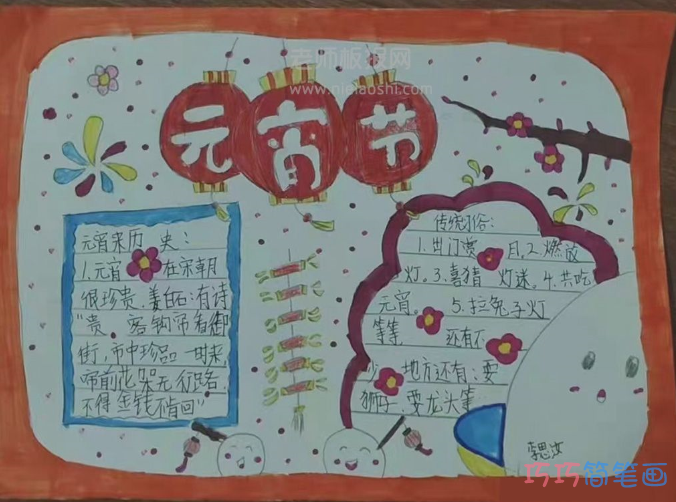 老师板报网
www.nielaoshi.com
元宵节
元宵来历史：
1.元宵在宋朝
很珍贵，姜白石有诗
"贵客钩帘看御
街，市中珍品一时来，
帘前花架无行路，
不得金钱不肯回"
传统习俗：
1.出门赏月。2.燃放
灯。3.喜猜灯迷。4.共吃
元宵。5.拉兔子灯
等等 还有不
少地方还有：耍
狮子，耍龙头等
巧巧简笔画